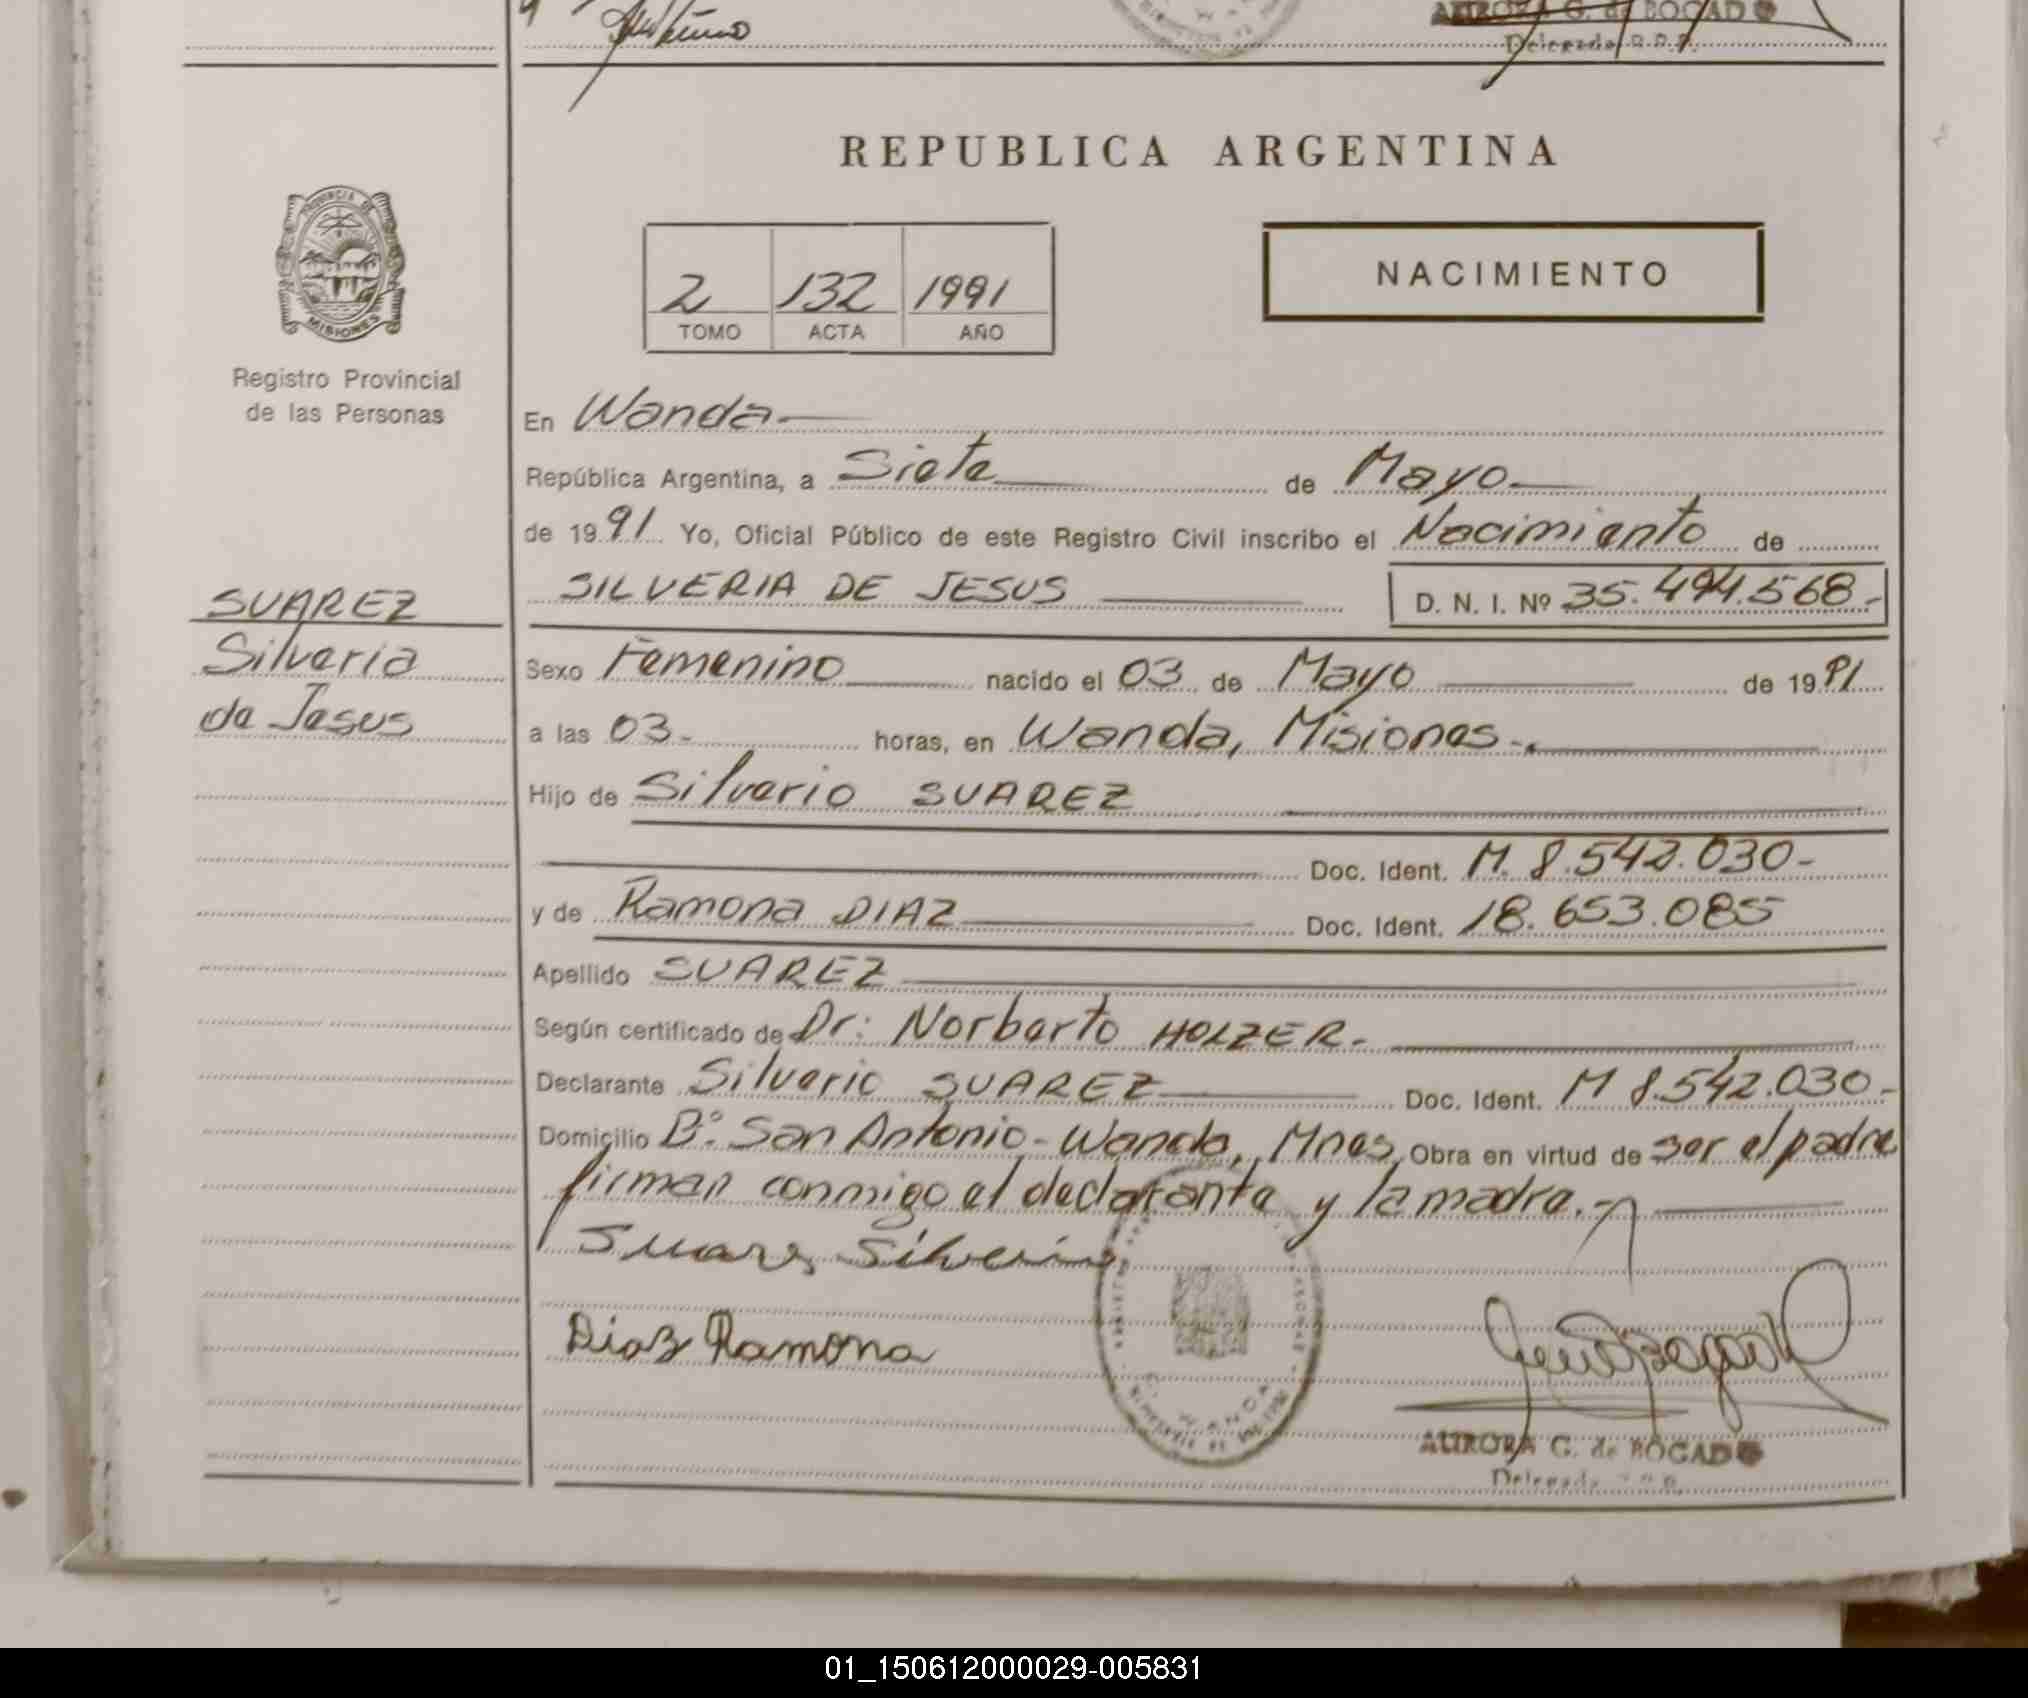 AURORA G. de BOGADO
Delegada R.P.P.
REPUBLICA ARGENTINA
PROVINCIA DE
MISIONES
Registro Provincial
de las Personas
2 132 1991
TOMO ACTA AÑO
NACIMIENTO
En Wanda-
República Argentina, a Siete de Mayo
de 1991 Yo, Oficial Público de este Registro Civil inscribo el Nacimiento de
SILVERIA DE JESUS D. N. I. Nº 35.494.568.-
SUAREZ
Silveria
de Jesus
Sexo Femenino nacido el 03 de Mayo de 1991
a las 03.- horas, en Wanda, Misiones.-
Hijo de Silverio SUAREZ
Doc. Ident. M. 8.542.030-
y de Ramona DIAZ Doc. Ident. 18.653.085
Apellido SUAREZ
Según certificado de Dr: Norberto HOLZER.-
Declarante Silverio SUAREZ Doc. Ident. M 8.542.030.-
Domicilio Bº. San Antonio - Wanda, Mnes. Obra en virtud de ser el padre
firman conmigo el declarante y la madre.-
Suarez Silverio
Diaz Ramona
WANDA
AURORA G. de BOGADO
Delegada
01_150612000029-005831